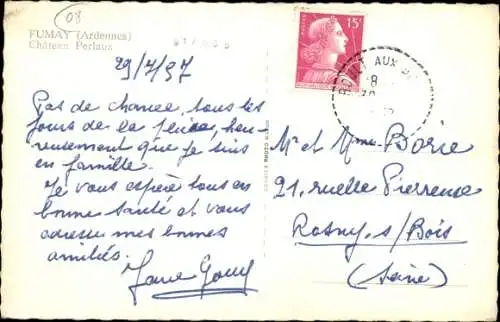 08
FUMAY (Ardennes)
Château Perlaux
29/7/57
Pas de chance, tous les
jours de la pluie, heu-
reusement que je suis
en famille.
Je vous espère tous en
bonne santé et vous
adresse mes bonnes
amitiés.
15F
AUX
8
Mr et Mme Borie
21, ruelle Pierreuse
Rosny s/ Bois
(Seine)